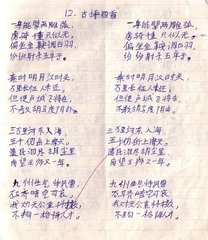 12. 古诗四首
一身能擘两雕弧，
虏骑千重只似无。
偏坐金鞍调白羽，
纷纷射杀五单于。
秦时明月汉时关，
万里长征人未还。
但使龙城飞将在，
不教胡马度阴山。
三万里河东入海，
五千仞岳上摩天。
遗民泪尽胡尘里，
南望王师又一年。
九州生气恃风雷，
万马齐喑究可哀。
我劝天公重抖擞，
不拘一格降人才。
一身能擘两雕弧，
虏骑千重只似无。
偏坐金鞍调白羽，
纷纷射杀五单于。
秦时明月汉时关，
万里长征人未还。
但使龙城飞将在，
不教胡马度阴山。
三万里河东入海，
五千仞岳上摩天。
遗民泪尽胡尘里，
南望王师又一年。
九州生气恃风雷，
万马齐喑究可哀。
我劝天公重抖擞，
不拘一格降人才。